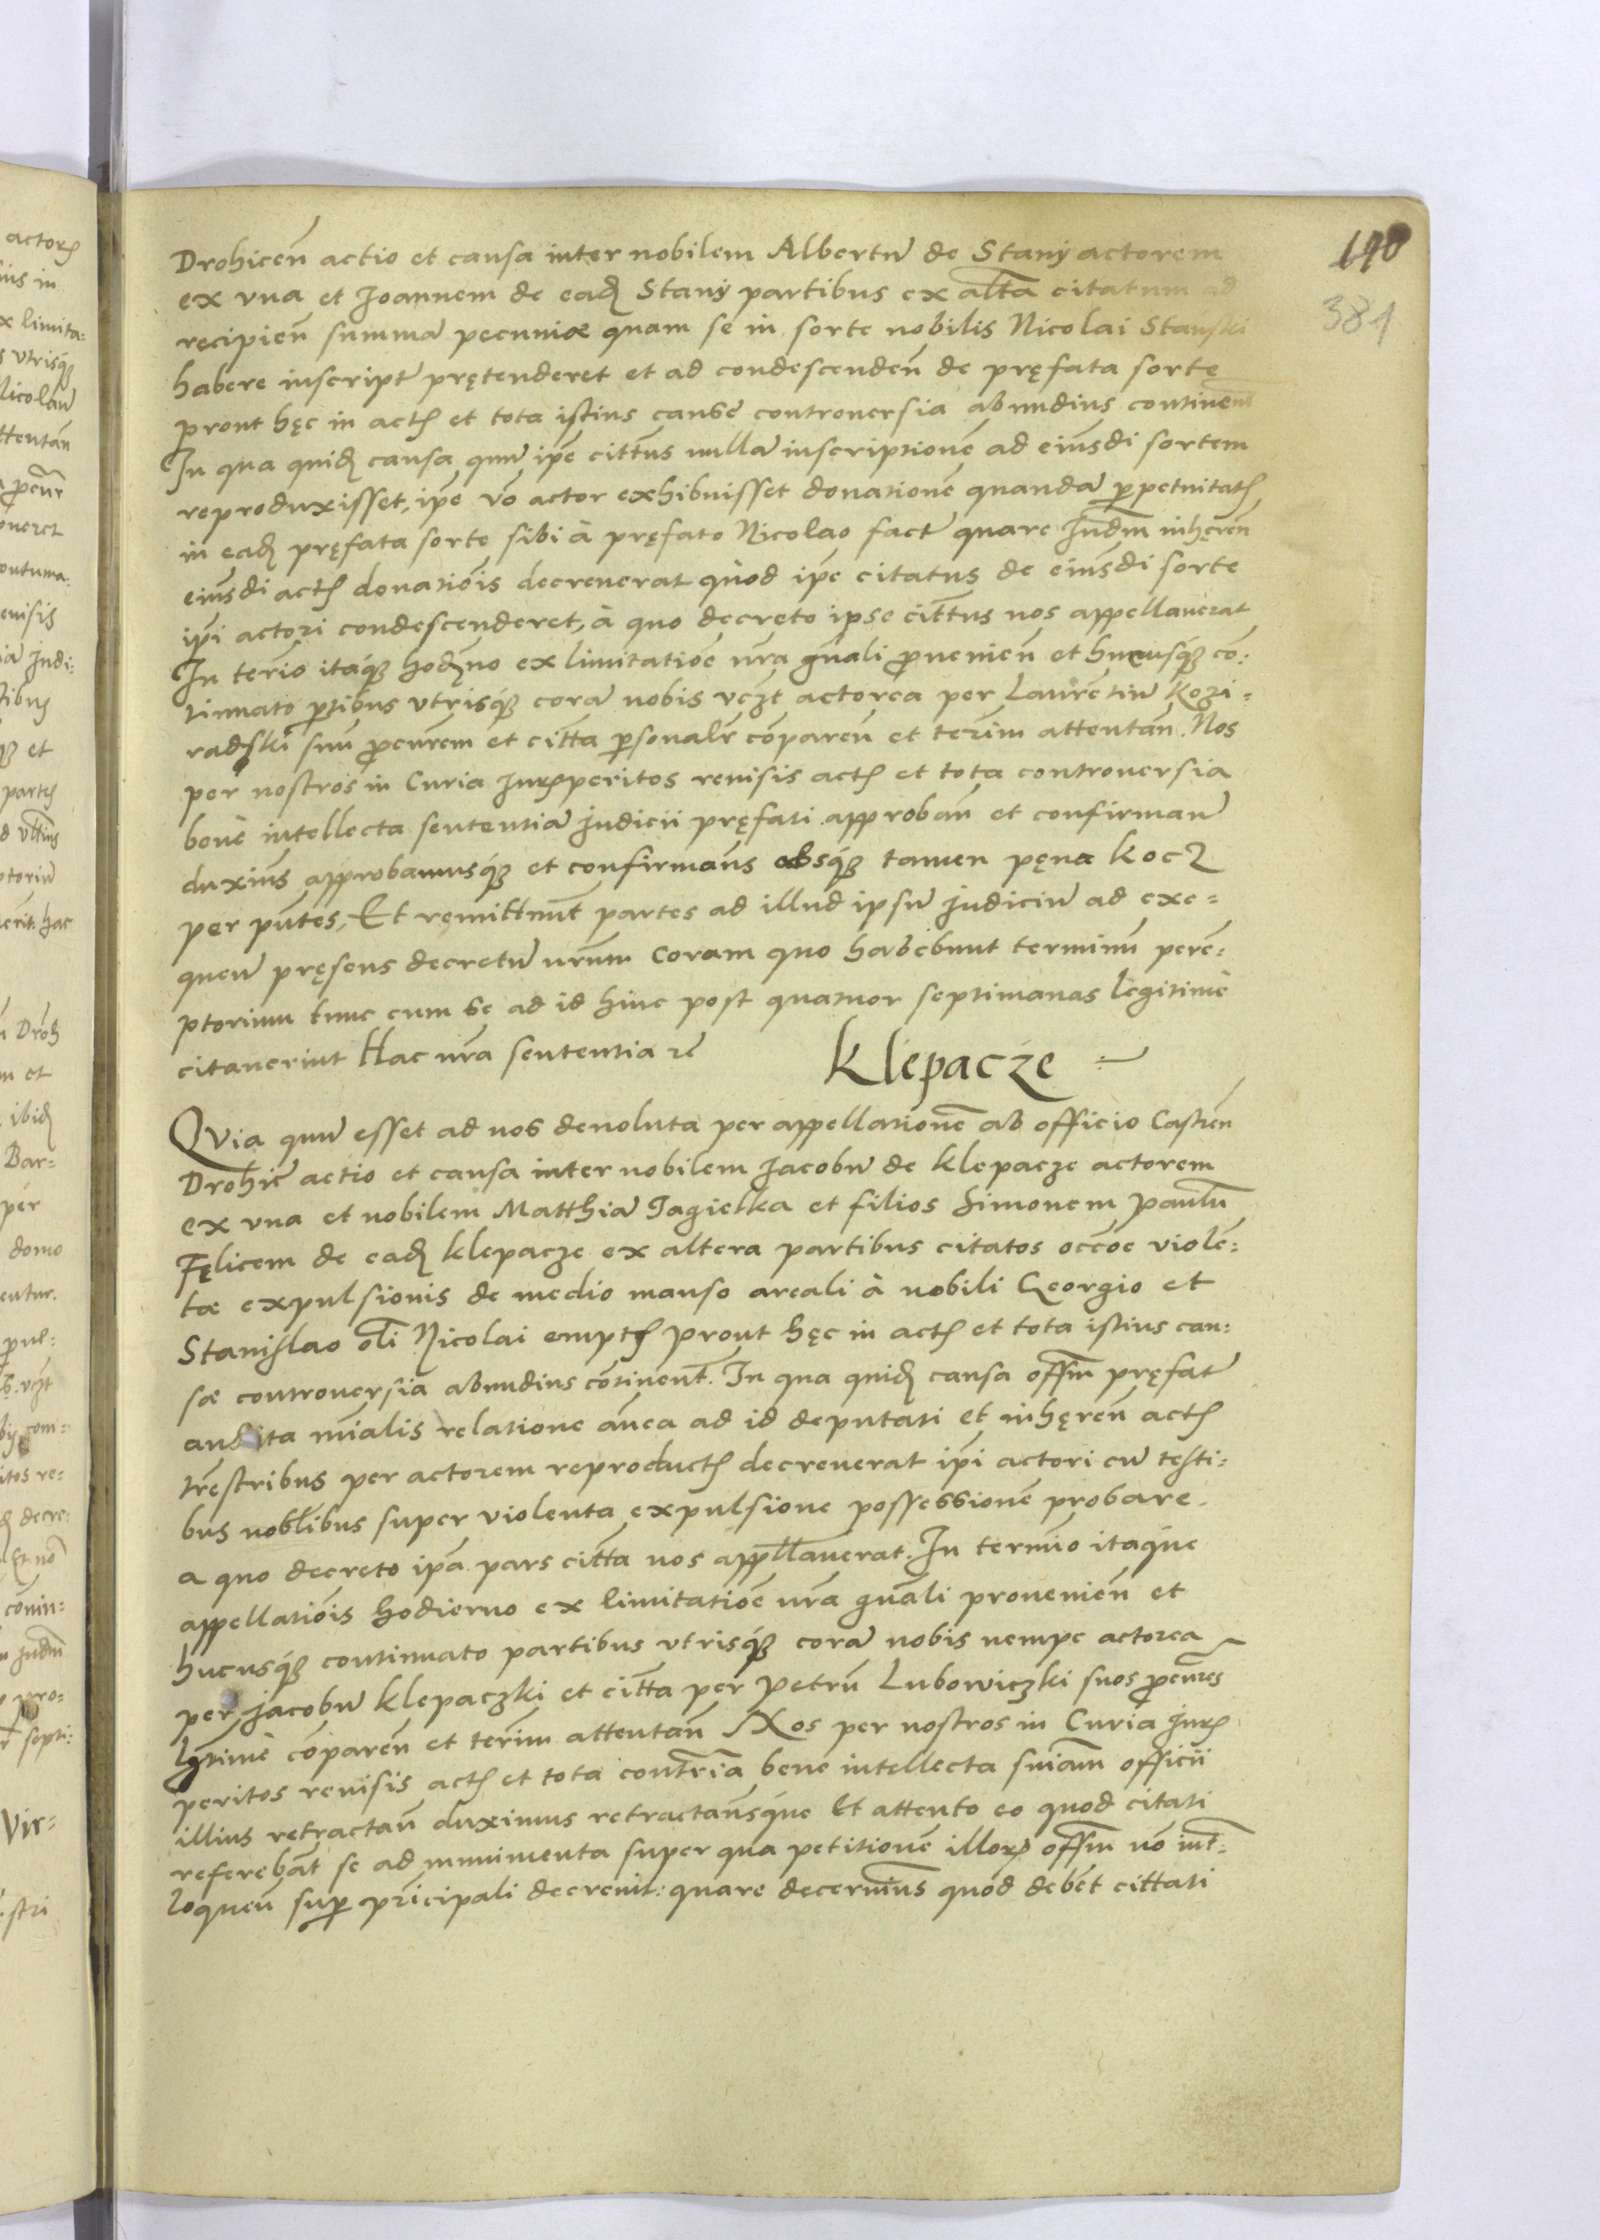 190
381
Drohicen̄ actio et causa inter nobilem Albertū de Stany actorem
ex vna et Joannem de eadẽ Stany partibus ex altãa citatum ad
recipien̄ summā pecuniæ quam se in sorte nobilis Nicolai Stanski
habere inscriptã prętenderet et ad condescenden̄ de pręfata sorte
prout hęc in actis et tota istius causę controuersia abundius continent̃
In qua quidẽ causa quū ip̃e citt̃us nullā inscriptionẽ ad eiusdi sortem
reproduxisset, ip̃e vo actor exhibuisset donationẽ quandā perpetuitatis
in eadẽ pręfata sorte sibi à pręfato Nicolao factã quare Judm̃ inhęren̄
eiusdi actis donatiõis decreuerat quod ip̃e citatus de eiusdi sorte
ip̃i actori condescenderet, à quo decreto ipse citt̃us nos appellauerat
In term̃io itaq̃ hodierno ex limitatiõe nr̃a gñali prouenien̄ et hucusq̃ co:
tinuato partibus vtrisq̃ corā nobis vczt̃ actorea per Laurẽtiū Kozi:
radzki suū procur̃em et citt̃a personalr̃ cõparen̄ et term̃in attentan̄. Nos
per nostros in Curia Jurisperitos reuisis actis et tota controuersia
bene intellecta sententiā judicii pręfati approban̄ et confirman̄
duxim̃us approbamusq̃ et confirmam̃s absq̃ tamen pęna kocz
per pñtes, Et remittim̃t partes ad illud ipsū judiciū ad exe:
quen̄ pręsens decretū nr̃um Coram quo habebunt terminũ perẽ:
ptorium tunc cum se ad id hinc post quatuor septimanas legitimè
citauerint Hac nr̃a sententia &c̃
Klepacze
Qvia quū esset ad nos deuoluta per appellationẽ ab officio Castren̄
Drohic̃ actio et causa inter nobilem Jacobū de Klepacze actorem
ex vna et nobilem Matthiā Jagielka et filios Simonem Paulũ
Fęlicem de eadẽ klepacze ex altera partibus citatos occõe violẽ:
tæ expulsionis de medio manso areali à nobili Georgio et
Stanislao oli Nicolai emptis prout hęc in actis et tota istius cau:
sæ controuersia abundius cõtinent̃. In qua quidẽ causa offm̃ pręfatũ
audita mĩalis relatione anẽa ad id deputati et inhęren̄ actis
tr̃estribus per actorem reproductis decreuerat ip̃i actori cū testi:
bus nobl̃ibus super violenta expulsione possessionẽ probare.
a quo decreto ip̃a pars citt̃a nos appllauerat. In termĩo itaque
appellatiõis hodierno ex limitatiõe nr̃a gñali prouenien̄ et
hucusq̃ continuato partibus vtrisq̃ corā nobis nempe actorea
per Jacobū klepaczki et citt̃a per Petrũ Lubowiczki suos procur̃es
lgt̃ime cõparen̄ et term̃in attentan̄ Nos per nostros in Curia Juris
peritos reuisis actis et tota contr̃ia bene intellecta sñiam officii
illius retractan̄ duximus retractam̃sque Et attento eo quod citati
referebãt se ad munimenta super qua petitionẽ illorum offm̃ nõ int̃:
loquen̄ sup̃ principali decreuit: quare decernim̃s quod debẽt cittati